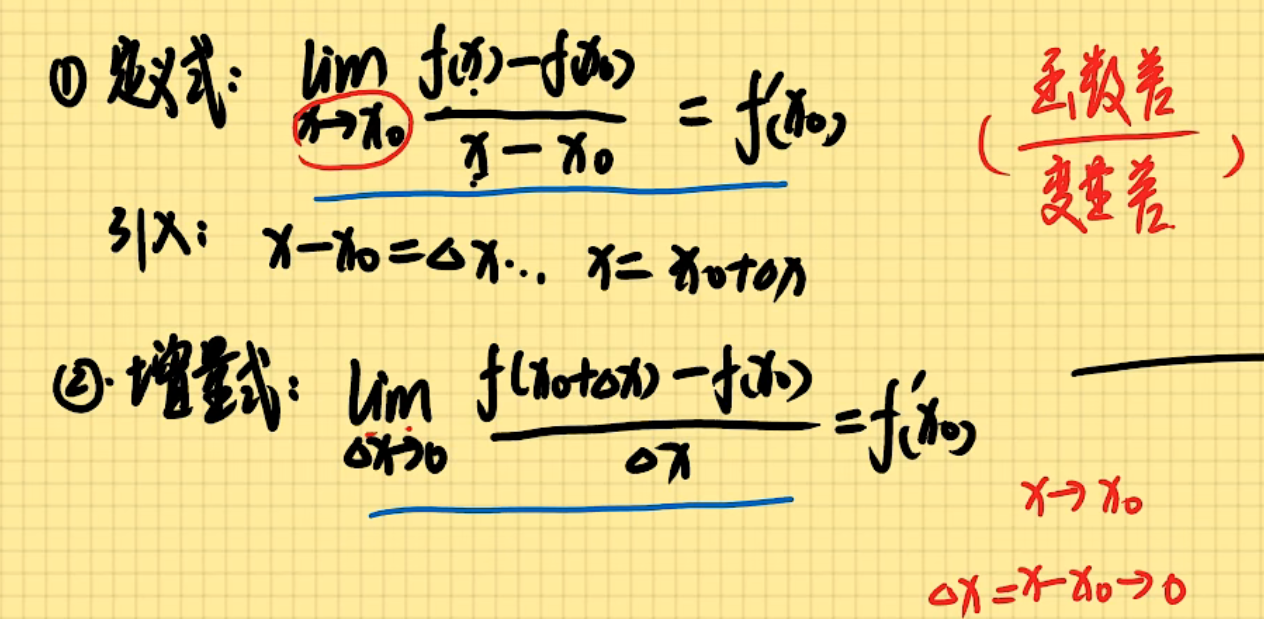 ① 定义式: lim x→x₀ (f(x)-f(x₀))/(x-x₀) = f′(x₀)
(函数差/变量差)
引入: x-x₀=Δx… x=x₀+Δx
②. 增量式: lim Δx→0 (f(x₀+Δx)-f(x₀))/Δx = f′(x₀)
x→x₀
Δx=x-x₀→0